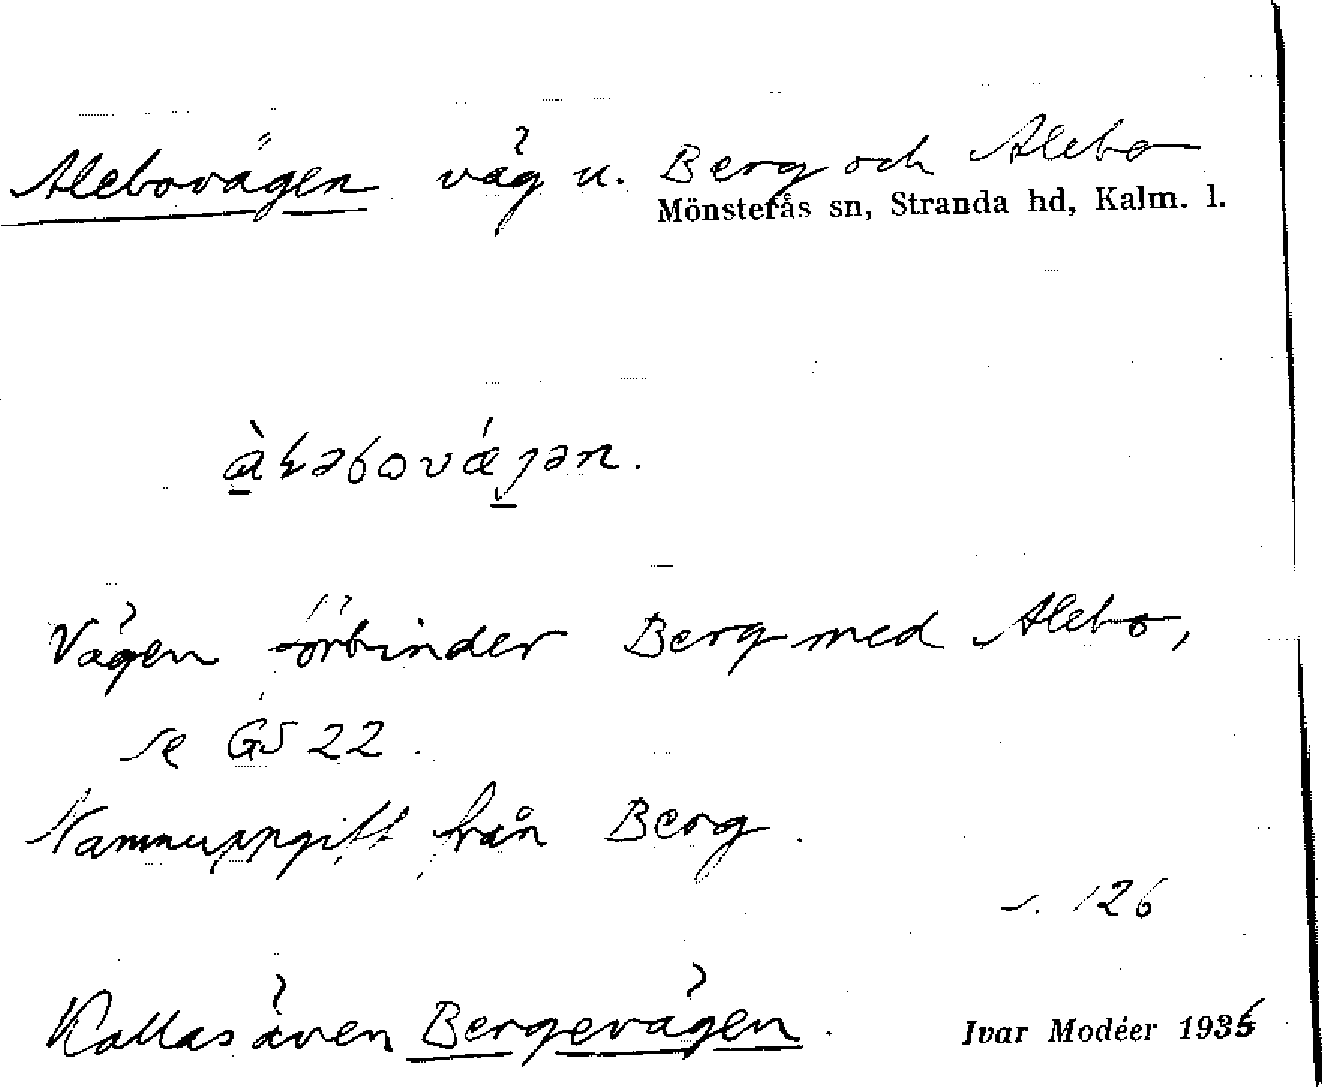 Alebovägen väg u. Berg och Alebo
Mönsterås sn, Stranda hd, Kalm. l.
Vägen förbinder Berg med Alebo,
se GS 22.
Namnuppgift från Berg.
s. 126
Kallas även Bergevägen.
Ivar Modéer 1936